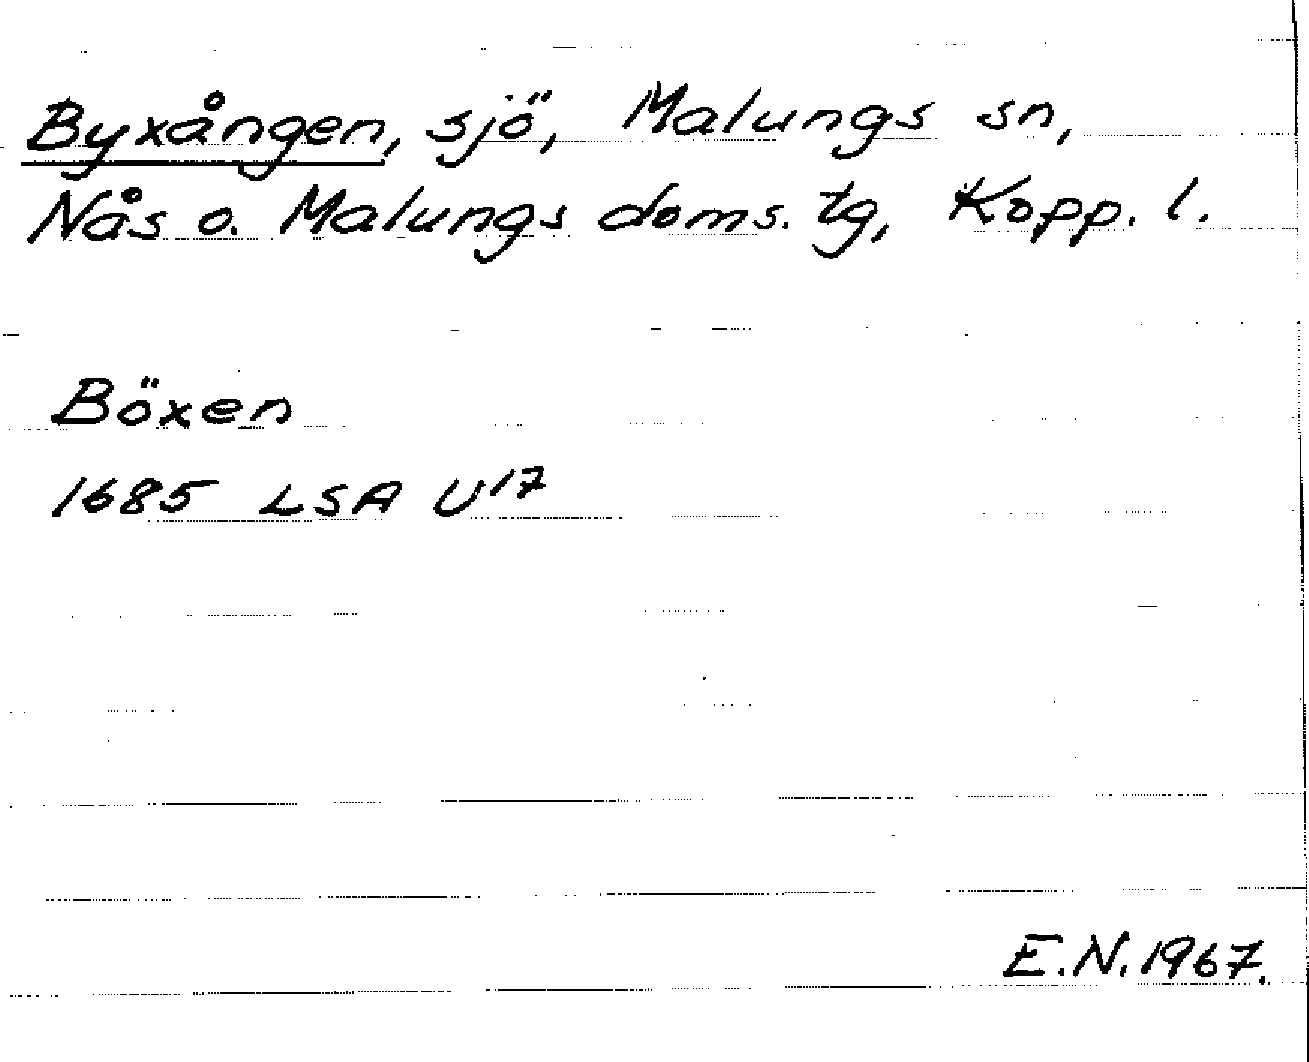 Byxången, sjö, Malungs sn,
Nås o. Malungs doms. tg, Kopp. l.
Böxen
1685 LSA U17
E.N. 1967.